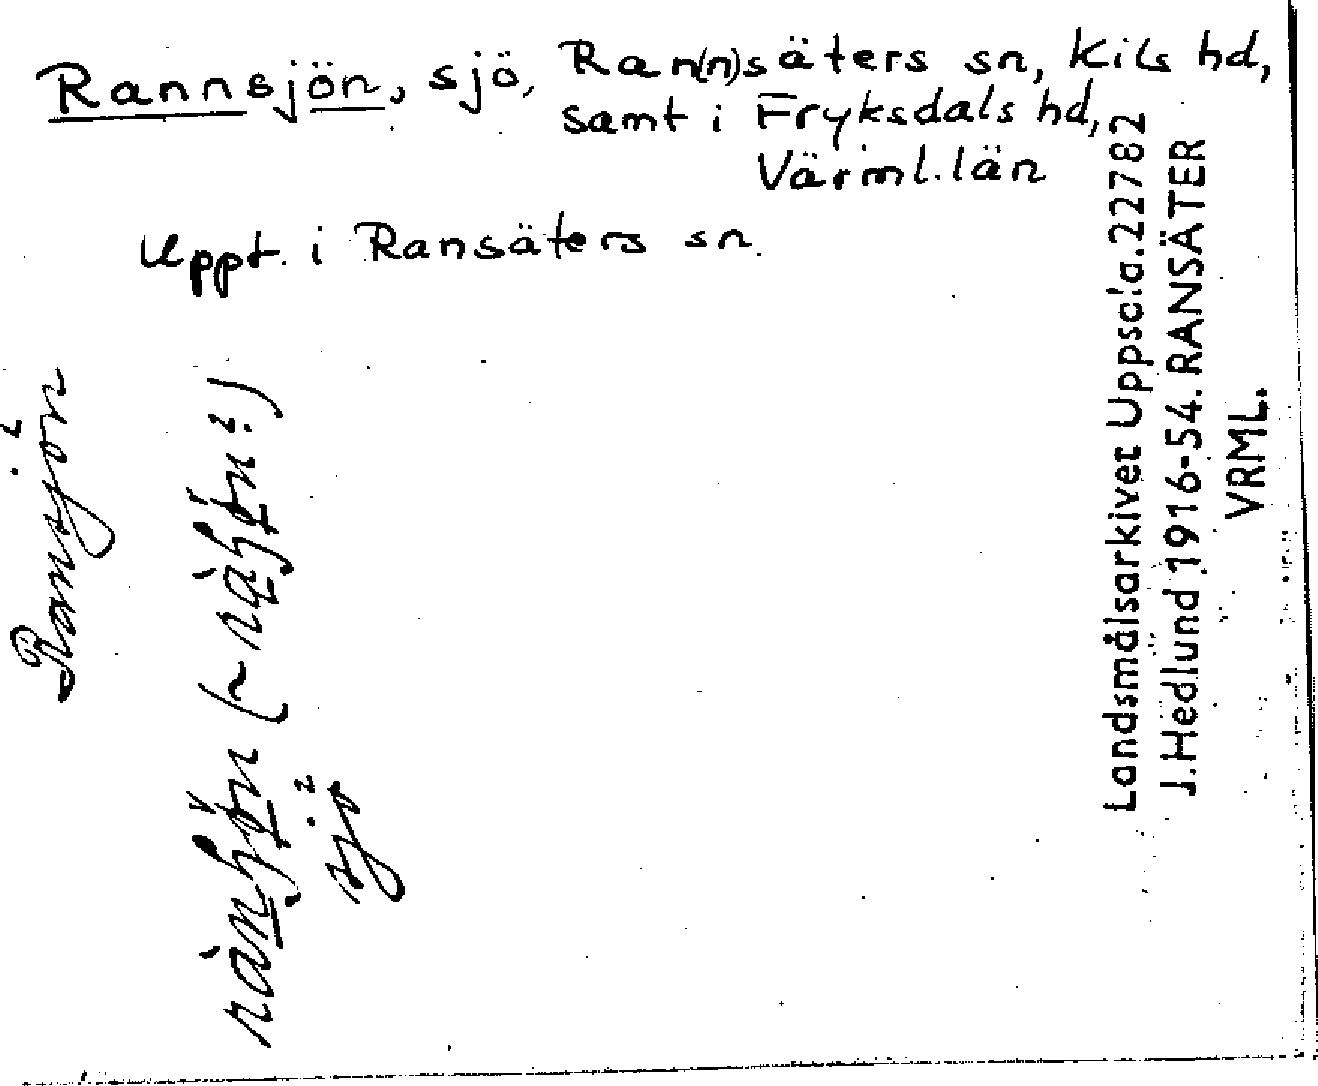 Rannsjön, sjö, Ran(n)säters sn, Kils hd,
samt i Fryksdals hd,
Värml. län
Uppt. i Ransäters sn.
Ransjön
sjö
Landsmålsarkivet Uppsala. 22782
J. Hedlund 1916-54. RANSÄTER
VRML.